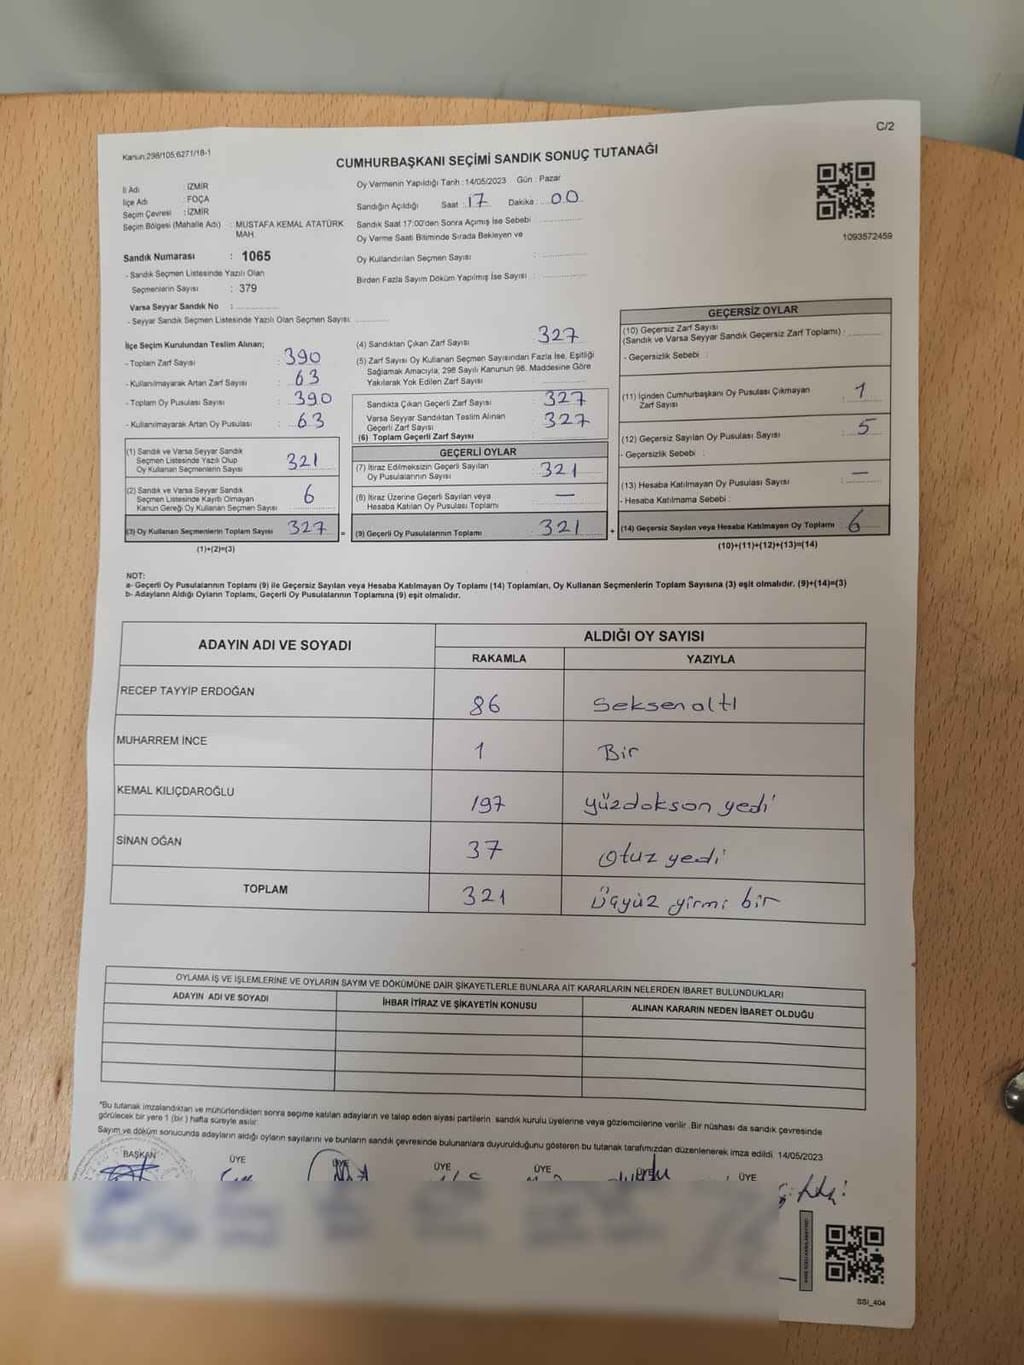 C/2
Kanun:298/105,6271/18-1
CUMHURBAŞKANI SEÇİMİ SANDIK SONUÇ TUTANAĞI
İl Adı : İZMİR
İlçe Adı : FOÇA
Seçim Çevresi : İZMİR
Seçim Bölgesi (Mahalle Adı) : MUSTAFA KEMAL ATATÜRK MAH.
Sandık Numarası : 1065
- Sandık Seçmen Listesinde Yazılı Olan
Seçmenlerin Sayısı : 379
Varsa Seyyar Sandık No :
- Seyyar Sandık Seçmen Listesinde Yazılı Olan Seçmen Sayısı:
Oy Vermenin Yapıldığı Tarih : 14/05/2023 Gün : Pazar
Sandığın Açıldığı Saat : 17 Dakika : 00
Sandık Saat 17:00'den Sonra Açımış İse Sebebi
Oy Verme Saati Bitiminde Sırada Bekleyen ve
Oy Kullandırılan Seçmen Sayısı :
Birden Fazla Sayım Döküm Yapılmış İse Sayısı :
1093572459
İlçe Seçim Kurulundan Teslim Alınan;
- Toplam Zarf Sayısı : 390
- Kullanılmayarak Artan Zarf Sayısı : 63
- Toplam Oy Pusulası Sayısı : 390
- Kullanılmayarak Artan Oy Pusulası : 63
(1) Sandık ve Varsa Seyyar Sandık
Seçmen Listesinde Yazılı Olup
Oy Kullanan Seçmenlerin Sayısı 321
(2) Sandık ve Varsa Seyyar Sandık
Seçmen Listesinde Kayıtlı Olmayan
Kanun Gereği Oy Kullanan Seçmen Sayısı 6
(3) Oy Kullanan Seçmenlerin Toplam Sayısı 327 =
(1)+(2)=(3)
(4) Sandıktan Çıkan Zarf Sayısı : 327
(5) Zarf Sayısı Oy Kullanan Seçmen Sayısından Fazla İse, Eşitliği
Sağlamak Amacıyla, 298 Sayılı Kanunun 98. Maddesine Göre
Yakılarak Yok Edilen Zarf Sayısı :
Sandıkta Çıkan Geçerli Zarf Sayısı : 327
Varsa Seyyar Sandıktan Teslim Alınan
Geçerli Zarf Sayısı
(6) Toplam Geçerli Zarf Sayısı : 327
GEÇERLİ OYLAR
(7) İtiraz Edilmeksizin Geçerli Sayılan
Oy Pusulalarının Sayısı : 321
(8) İtiraz Üzerine Geçerli Sayılan veya
Hesaba Katılan Oy Pusulası Toplamı : —
(9) Geçerli Oy Pusulalarının Toplamı : 321 +
GEÇERSİZ OYLAR
(10) Geçersiz Zarf Sayısı
(Sandık ve Varsa Seyyar Sandık Geçersiz Zarf Toplamı) :
- Geçersizlik Sebebi :
(11) İçinden Cumhurbaşkanı Oy Pusulası Çıkmayan
Zarf Sayısı : 1
(12) Geçersiz Sayılan Oy Pusulası Sayısı : 5
- Geçersizlik Sebebi :
(13) Hesaba Katılmayan Oy Pusulası Sayısı : —
- Hesaba Katılmama Sebebi :
(14) Geçersiz Sayılan veya Hesaba Katılmayan Oy Toplamı : 6
(10)+(11)+(12)+(13)=(14)
NOT:
a- Geçerli Oy Pusulalarının Toplamı (9) ile Geçersiz Sayılan veya Hesaba Katılmayan Oy Toplamı (14) Toplamları, Oy Kullanan Seçmenlerin Toplam Sayısına (3) eşit olmalıdır. (9)+(14)=(3)
b- Adayların Aldığı Oyların Toplamı, Geçerli Oy Pusulalarının Toplamına (9) eşit olmalıdır.
ADAYIN ADI VE SOYADI ALDIĞI OY SAYISI
RAKAMLA YAZIYLA
RECEP TAYYİP ERDOĞAN 86 Seksen altı
MUHARREM İNCE 1 Bir
KEMAL KILIÇDAROĞLU 197 yüzdokson yedi
SİNAN OĞAN 37 Otuz yedi
TOPLAM 321 Üçyüz yirmi bir
OYLAMA İŞ VE İŞLEMLERİNE VE OYLARIN SAYIM VE DÖKÜMÜNE DAİR ŞİKAYETLERLE BUNLARA AİT KARARLARIN NELERDEN İBARET BULUNDUKLARI
ADAYIN ADI VE SOYADI İHBAR İTİRAZ VE ŞİKAYETİN KONUSU ALINAN KARARIN NEDEN İBARET OLDUĞU
*Bu tutanak imzalandıktan ve mühürlendikten sonra seçime katılan adayların ve talep eden siyasi partilerin sandık kurulu üyelerine veya gözlemcilerine verilir. Bir nüshası da sandık çevresinde
görülecek bir yere 1 (bir ) hafta süreyle asılır.
Sayım ve döküm sonucunda adayların aldığı oyların sayılarını ve bunların sandık çevresinde bulunanlara duyurulduğunu gösteren bu tutanak tarafımızdan düzenlenerek imza edildi. 14/05/2023
BAŞKAN ÜYE ÜYE ÜYE ÜYE ÜYE ÜYE
SSI_404